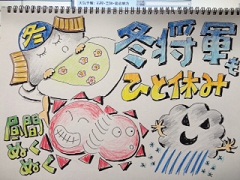 冬将軍も
ひと休み
昼間
ぬく
ぬく